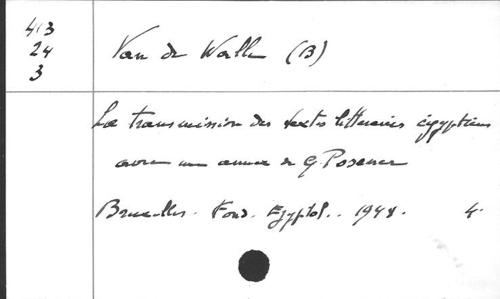 413
24
3
Van de Walle (B)
La transmission des textes litteraires égyptiens
avec une annexe de G. Posener
Bruxelles. Fond. Egyptol.. 1948. 4°